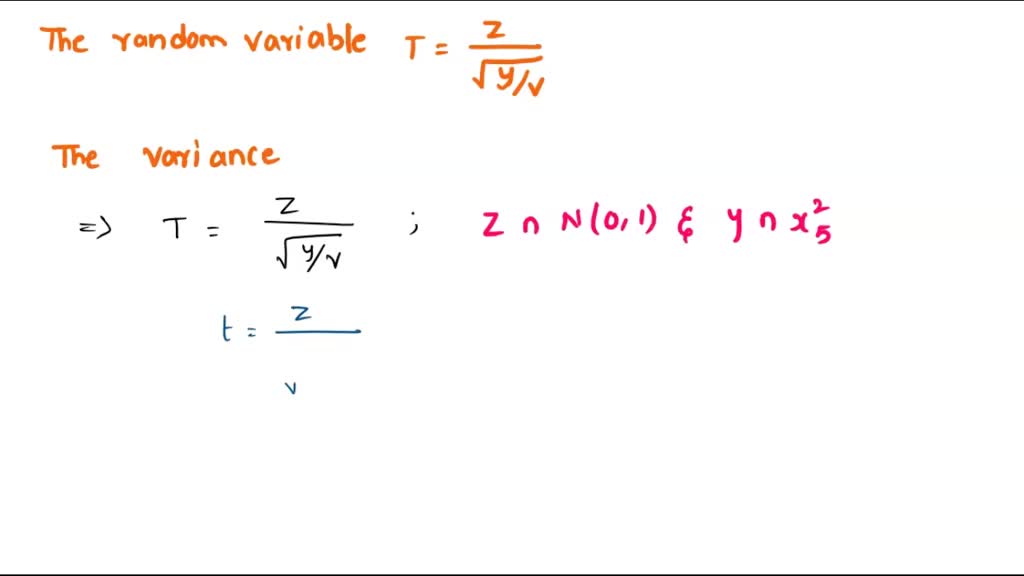 The random variable T = z / √y/v
The variance
=> T = z / √y/v ; z ∩ N(0,1) & y ∩ x²₅
t = z / v